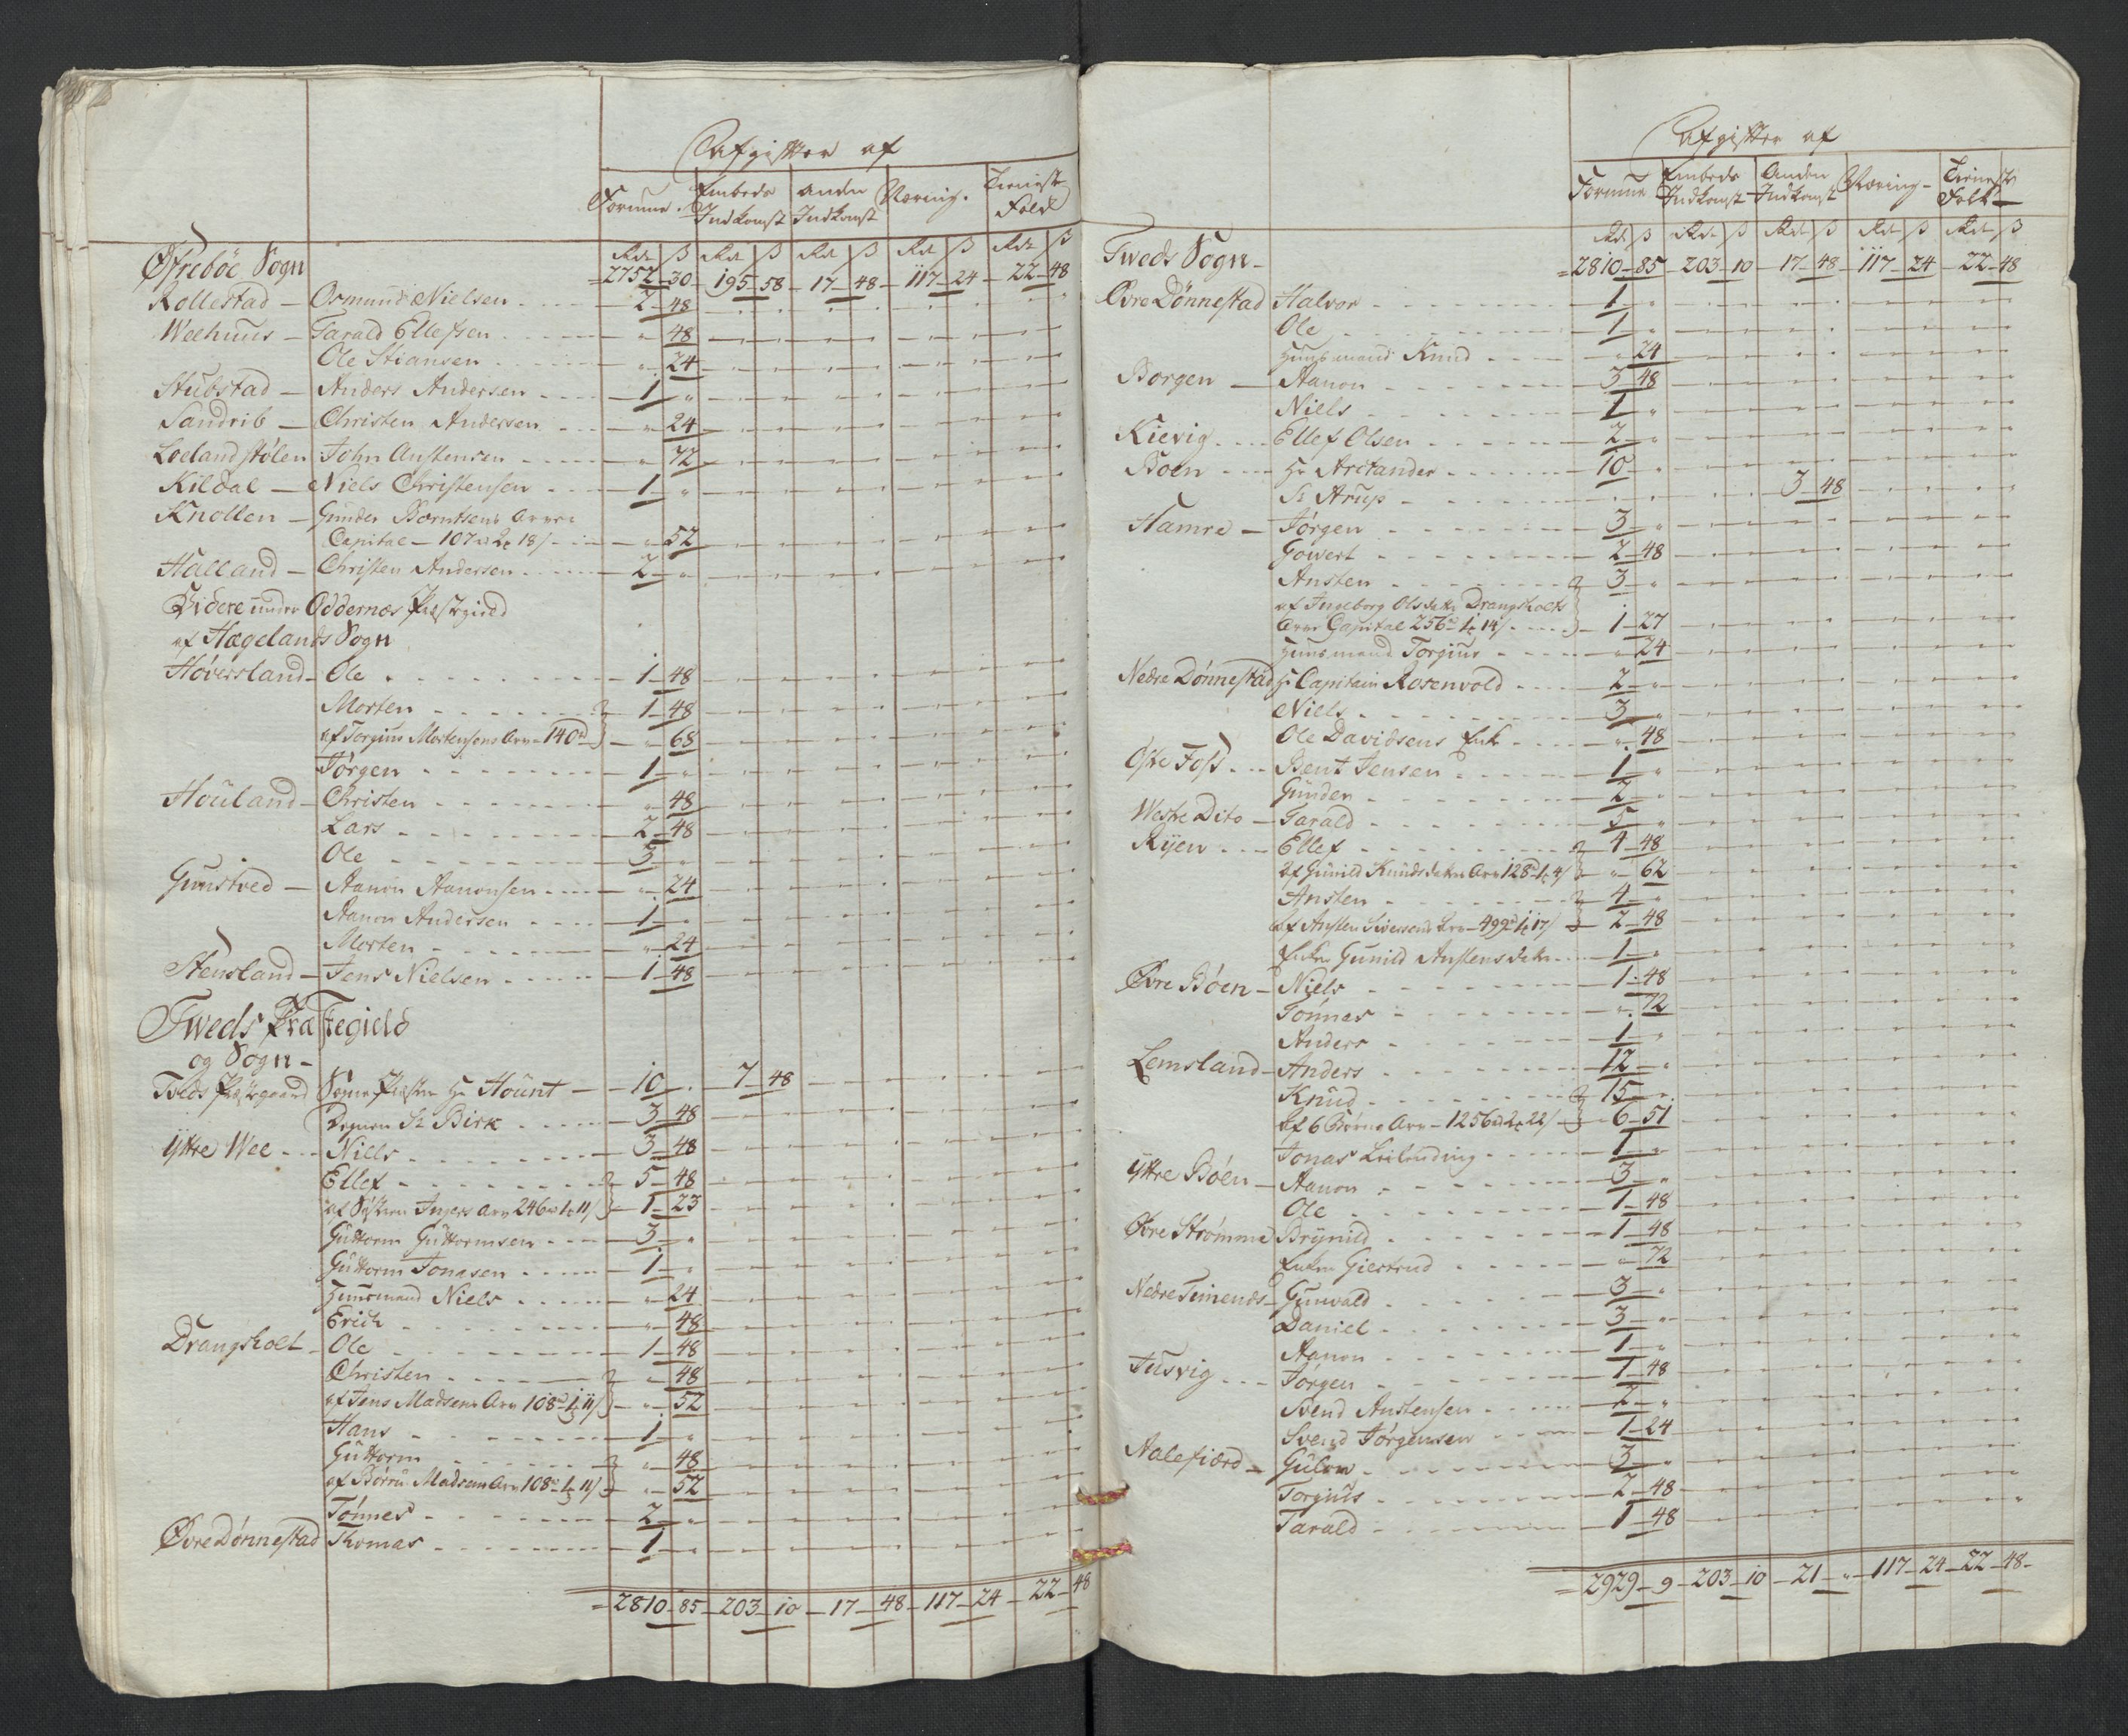 Afgifter af
Formue. Embeds Indkomst Anden Indkomst Næring. Tieniste Folk
Rdr ß Rdr ß Rdr ß Rdr ß Rdr ß
Øfrebøe Sogn 2752 - 30 - 195 - 58 - 17 - 48 - 117 - 24 - 22 - 48
Rollestad - Osmund Nielsen 2 - 48
Weehuus - Tarald Ellefsen " 48
Ole Stiansen " 24
Stubstad - Anders Andersen 1 "
Sandrib - Christen Andersen " 24
Loelandstølen John Anstensen " 72
Kildal - Niels Christensen 1 "
Knollen - Gunder Berntsens Arve
Capital - 107 rd 2 18 ß " 52
Halland - Christen Andersen 2 "
Videre under Oddernæs Præstegield
af Hægelands Sogn
Høversland - Ole 1 - 48
Morten 1 - 48
af Torgius Mortensens Arv - 140 rd " 68
Jørgen 1 "
Houland - Christen " 48
Lars 2 - 48
Ole 3 "
Gunstved - Aanon Aanonsen " 24
Aanon Andersen 1 "
Morten " 24
Stensland - Jens Nielsen 1 - 48
Tweds Præstegield
og Sogn -
Tveds Præstegaard Sogne Præsten Hr Hount - 10 . 7 - 48
Degnen Sr Birk 3 - 48
Ÿttre Wee - Niels 3 - 48
Ellef 5 - 48
af Søstren Ingers Arv 246 rd 1 11 ß 1 - 23
Guttorm Guttormsen 3 "
Guttorm Jonasen 1 "
Huusmand Niels " 24
Erich " 48
Drangsholt - Ole 1 - 48
Christen " 48
af Jens Madsens Arv 108 rd 1 11 ß " 52
Hans 1 "
Guttorm " 48
af Børru Madsens Arv 108 rd 1 11 ß " 52
Tønnes 2 "
Øvre Dønnestad Thomas 1 "
2810 - 85 - 203 - 10 - 17 - 48 - 117 - 24 - 22 - 48
Afgifter af
Formue Embeds Indkomst Anden Indkomst Næring - Tieniste Folk -
Rdr ß Rdr ß Rdr ß Rdr ß Rdr ß
Tweds Sogn - 2810 - 85 - 203 - 10 - 17 - 48 - 117 - 24 - 22 - 48
Øvre Dønnestad Halvor 1 "
Ole 1 "
Huusmand Knud " 24
Borgen - Aanon 3 - 48
Niels 1 "
Kievig - Ellef Olsen 2 "
Boen - Hr Arctander 10 "
Sr Arup 3 - 48
Hamre - Jørgen 3 "
Gowert 2 - 48
Ansten 3 "
af Ingeborg Olsdatter Drangsholts
Arve Capital 256 rd 1 14 ß 1 - 27
Huusmand Torgius " 24
Nedre Dønnestad Hr Capitain Rosenvold 2 "
Niels 3 "
Ole Davidsens Enke " 48
Østre Foss - Bent Jensen 1 "
Gunder 2 "
Westre Dito - Tarald 5 "
Rÿen - Ellef 4 - 48
af Gunild Knudsdatter Arv 128 rd 1 4 ß " 62
Ansten 4 "
af Ansten Siversens Arv - 499 rd 1 17 ß 2 - 48
Enken Gunild Anstensdatter 1 "
Øvre Bøen - Niels 1 - 48
Tønnes " 72
Anders 1 "
Lemsland - Anders 12 "
Knud 15 "
af 6 Børns Arv - 1256 rd 2 22 ß 6 - 51
Jonas Leilending 1 "
Ÿttre Bøen - Aanon 3 "
Ole 1 - 48
Øvre Strømme Brynild 1 - 48
Enken Giertrud " 72
Nedre Timenæs - Gunvald 3 "
Daniel 3 "
Aanon 1 "
Tusvig - Jørgen 1 - 48
Svend Anstensen 2 "
Svend Jørgensen 1 - 24
Aalefiærd - Gulow 3 "
Torgius 2 - 48
Tarald 1 - 48
2929 - 9 - 203 - 10 - 21 - " - 117 - 24 - 22 - 48 -